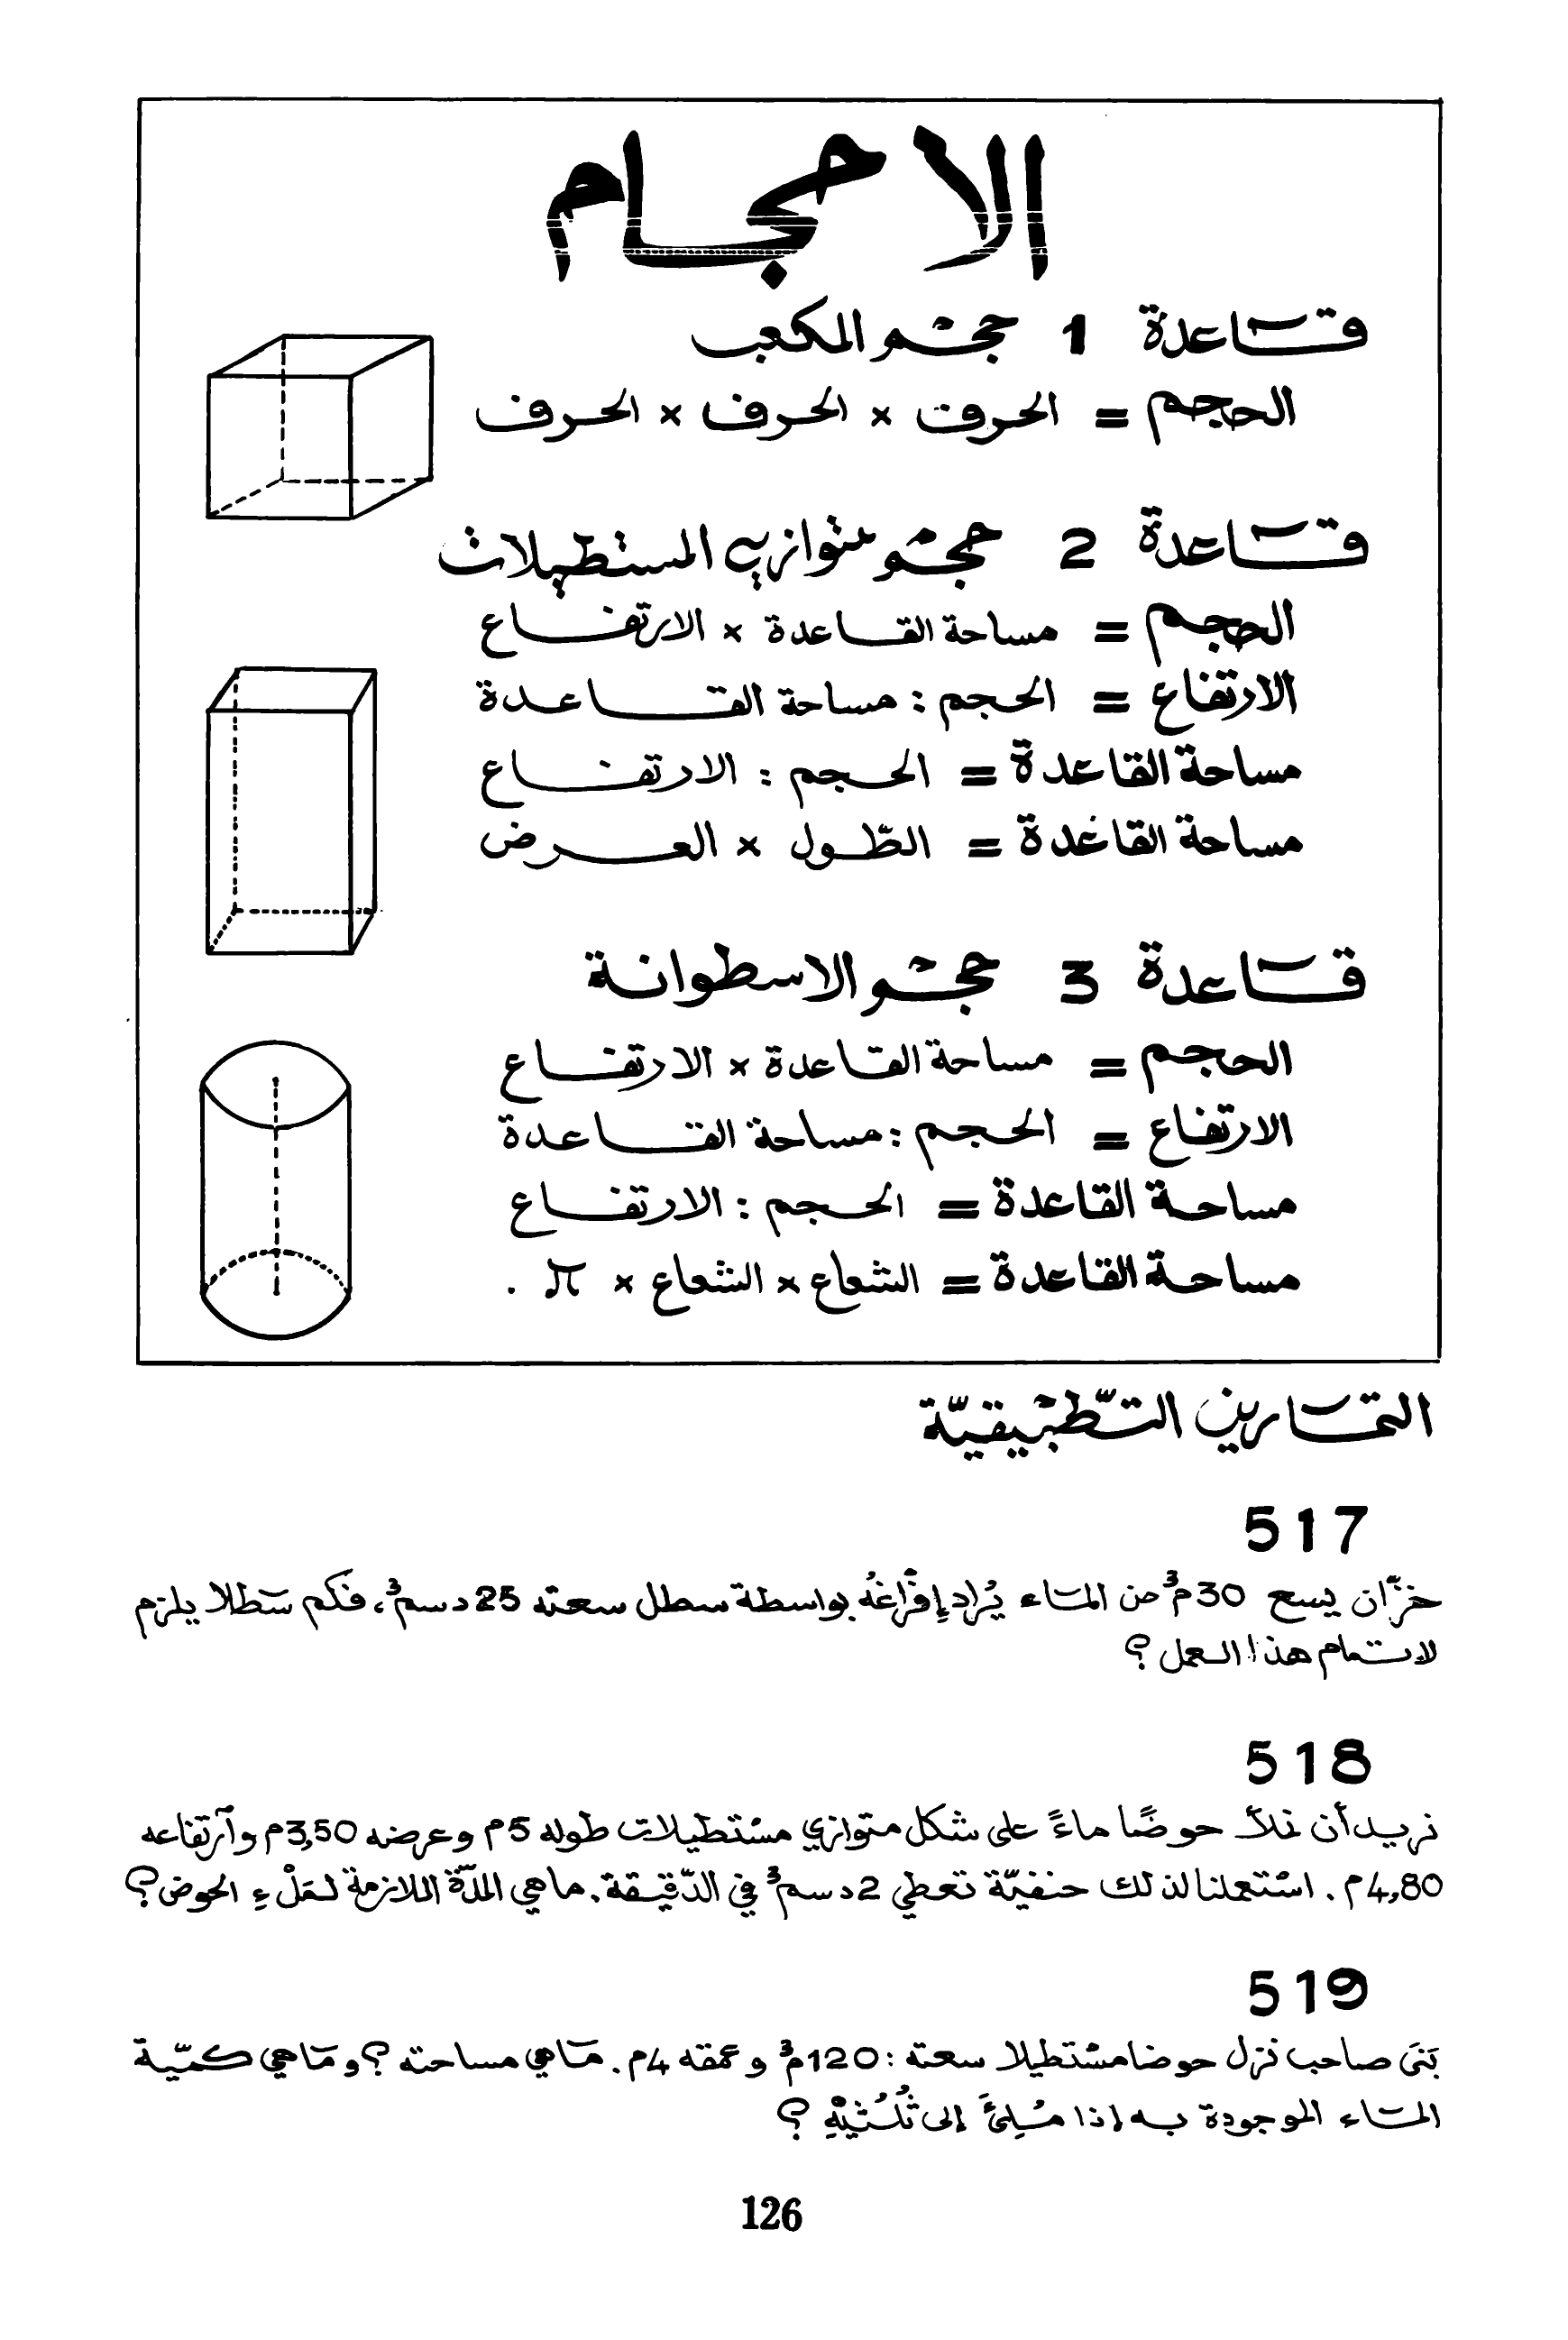 الاحجام
قاعدة 1 حجم المكعب
الحجم = الحرف × الحرف × الحرف
قاعدة 2 حجم متوازي المستطيلات
الحجم = مساحة القاعدة × الارتفاع
الارتفاع = الحجم : مساحة القاعدة
مساحة القاعدة = الحجم : الارتفاع
مساحة القاعدة = الطّول × العرض
قاعدة 3 حجم الاسطوانة
الحجم = مساحة القاعدة × الارتفاع
الارتفاع = الحجم : مساحة القاعدة
مساحة القاعدة = الحجم : الارتفاع
مساحة القاعدة = الشعاع × الشعاع × π .
التمارين التّطبيقيّة
517
خزّان يسع 30م³ من الماء يُراد إفْرَاغُهُ بواسطة سطل سعته 25دسم³، فكم سَطلا يلزم
لاتمام هذا العمل ؟
518
نريد أن نملأ حوضًا ماءً على شكل متوازي مسْتطيلات طوله 5م وعرضه 3,50م وآرتفاعه
4,80م . اسْتعملنا لذلك حنفيّة تعطي 2دسم³ في الدّقيقة. ماهي المدّة اللازمة لمَلْءِ الحوض؟
519
بَنَى صاحب نزل حوضا مسْتطيلا سعته : 120م³ وعمقه 4م. مَاهي مساحته ؟ ومَاهي كميّة
المَاء الموجودة به إذا مُلِئَ إلى ثُلُثيْهِ ؟
126